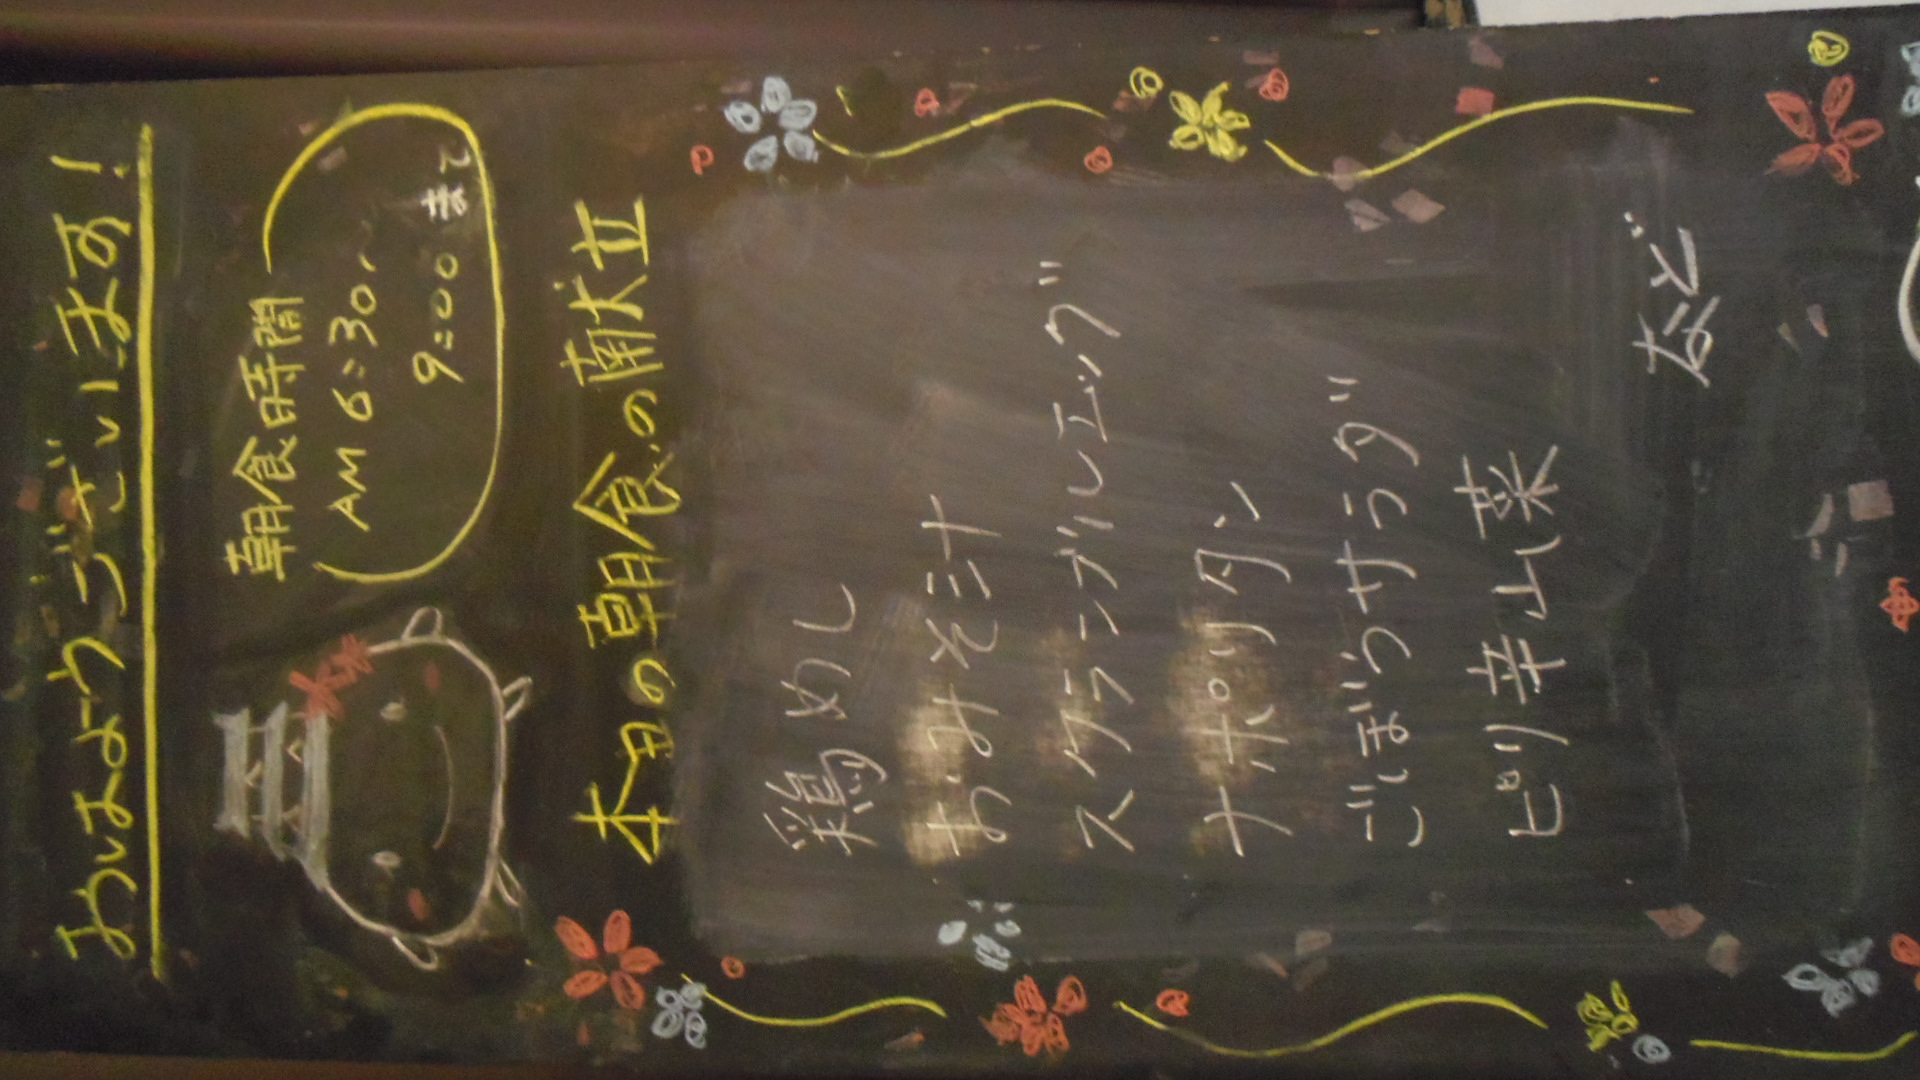 おはようございます!
朝食時間
AM 6:30~
9:00 まで
本日の朝食の献立
鶏めし
おみそ汁
スクランブルエッグ
ナポリタン
ごぼうサラダ
ピリ辛山菜
など